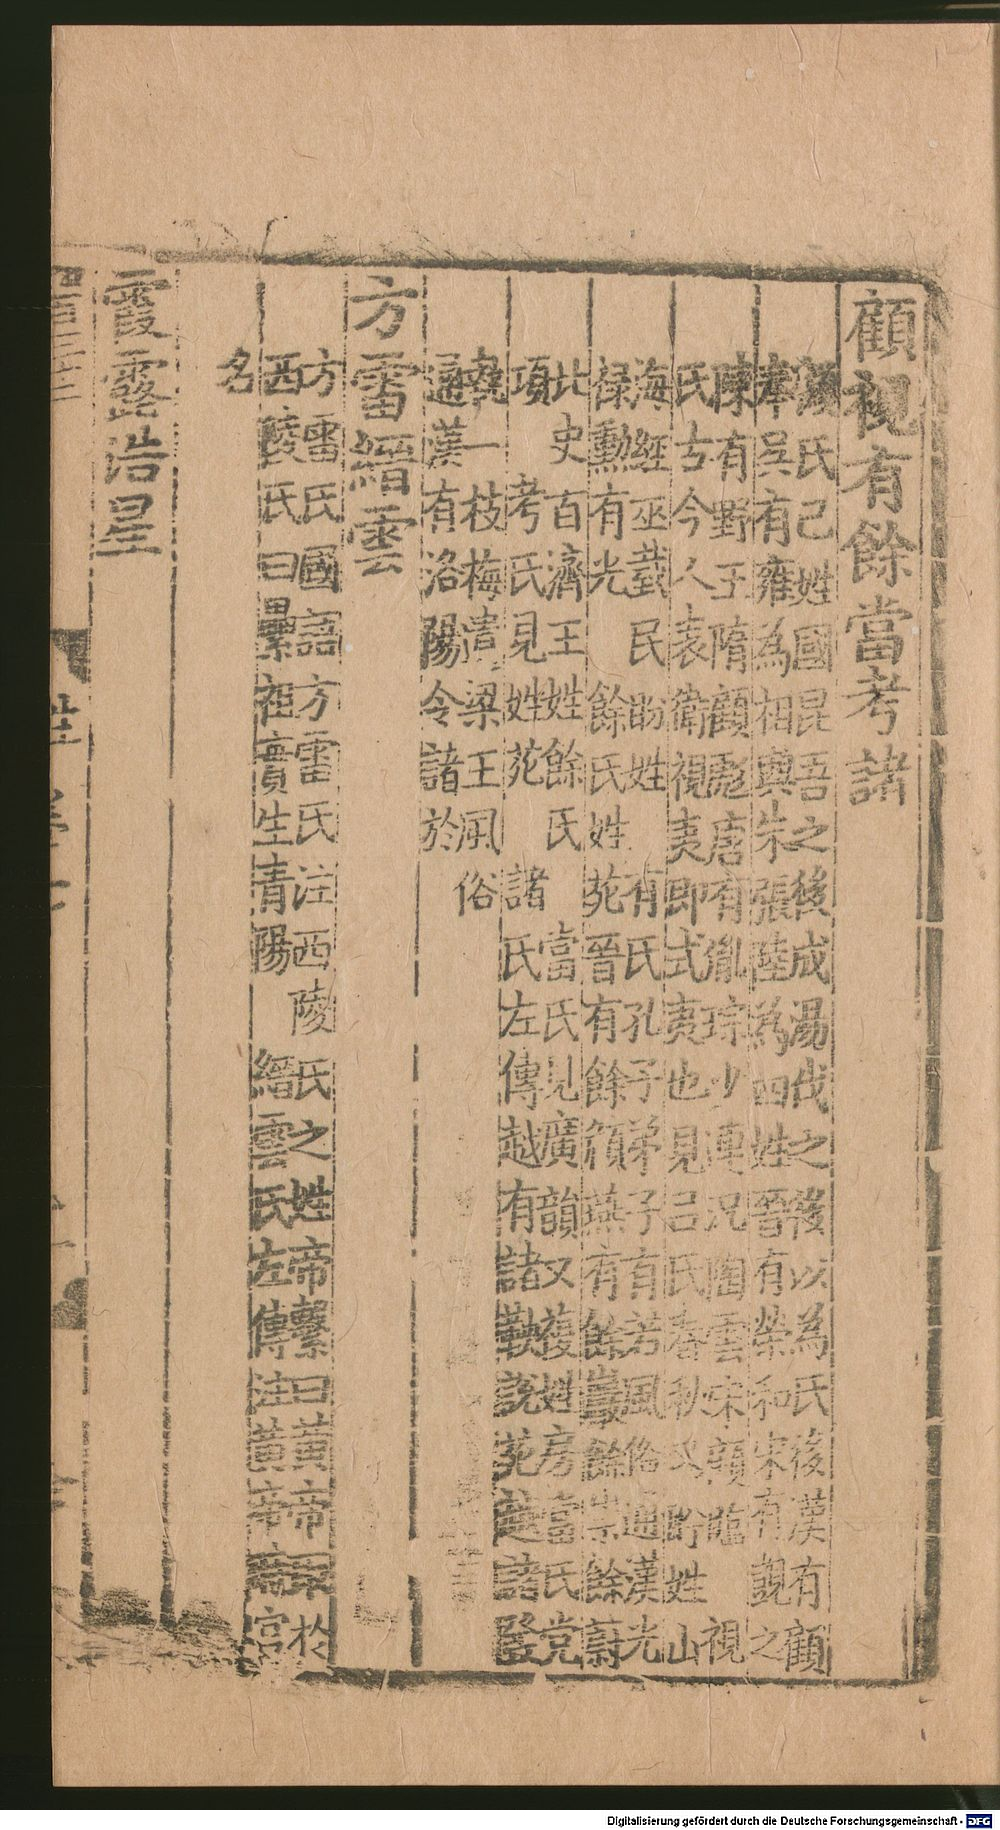 顧視有餘當考諸
顧氏己姓國昆吾之後成湯伐之後以為氏後漢有顧
奉吳有雍為相與朱張陸為四姓晉有榮和宋有覬之
陳有野王隋顧彪唐有胤琮少連況陶雲宋顧臨 視
氏古今人表衛視夷即式夷也見呂氏春秋 又盼姓 山
海經巫臷民盼姓 有氏孔子弟子有若風俗通漢光
祿勳有光 餘氏姓苑晉有餘頠燕有餘嵩餘崇餘蔚
北史百濟王姓餘氏 當氏見廣韻又複姓房當氏党
項 考氏見姓苑 諸氏左傳越有諸鞅說苑越諸發
執一枝梅遺梁王風俗
通漢有洛陽令諸於
方雷縉雲
方雷氏國語方雷氏注西陵氏之姓帝繫曰黃帝於
西陵氏曰纍祖實生青陽 縉雲氏左傳注黃帝 官
名
霞露浩星